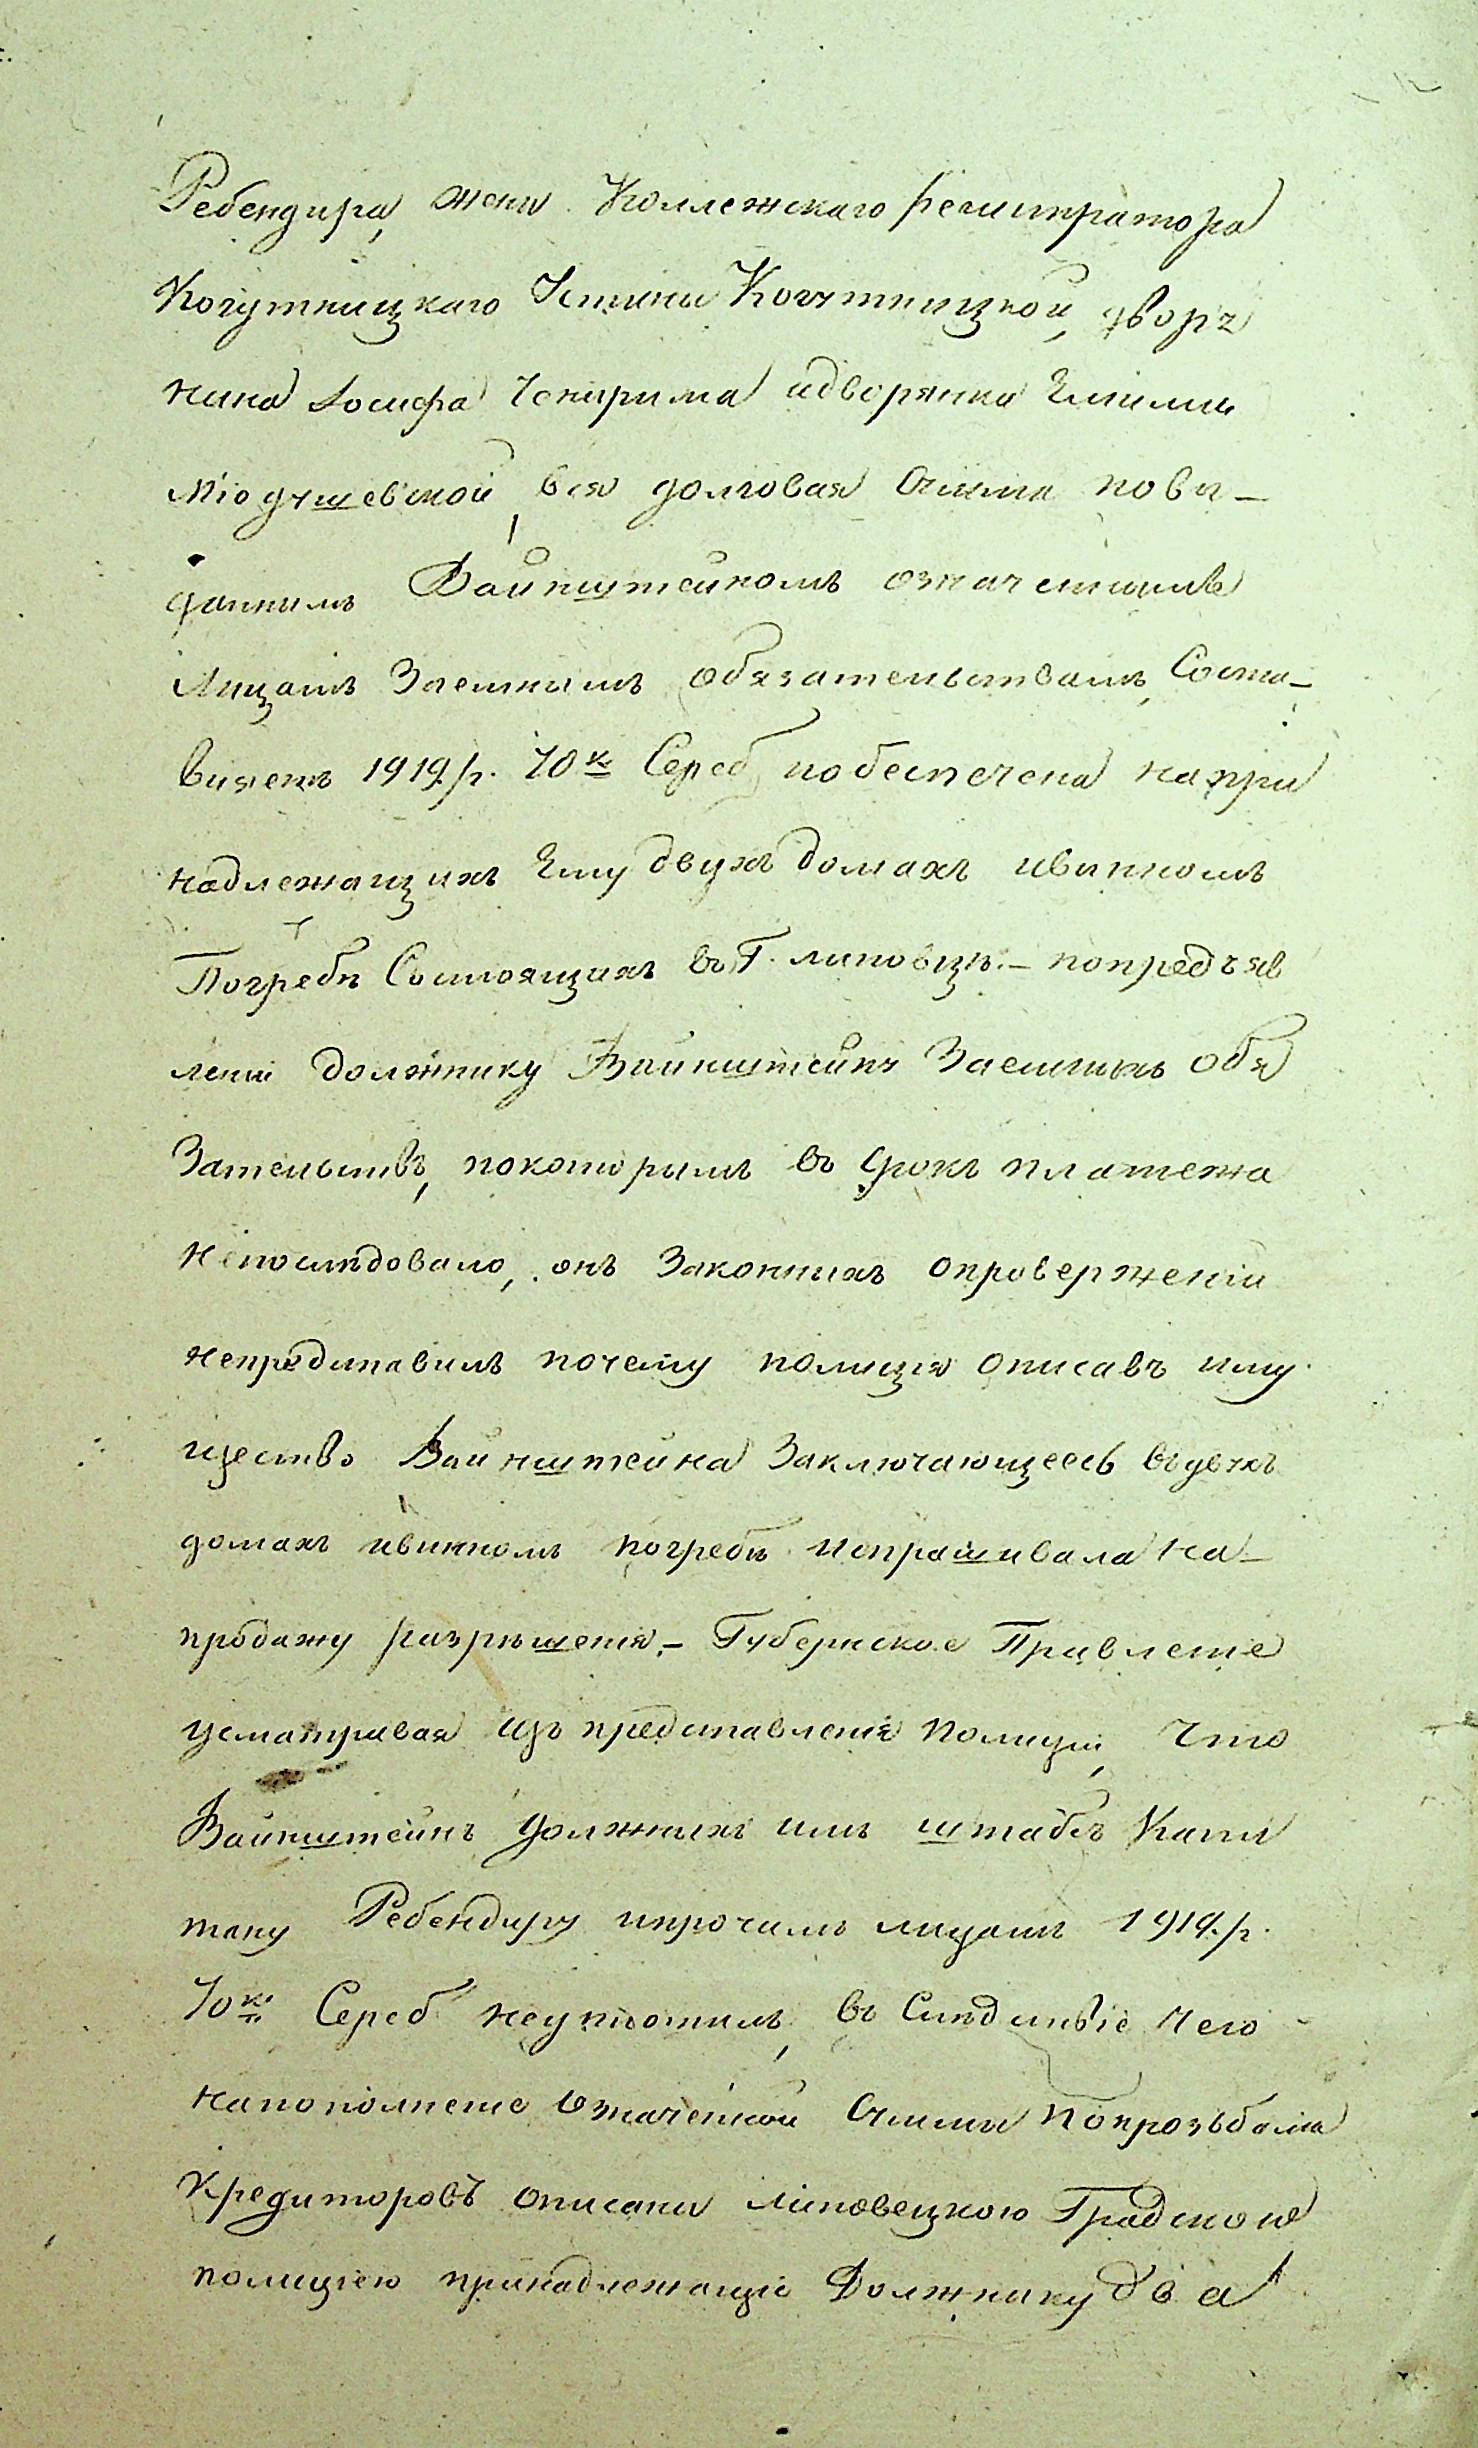 Ребендира, жены Коллежскаго Регистратора
Когутницкаго Устины Когутницкой, дворя
нина Іосифа Чекирима идворянки Емилии
Міодушевской, вся долговая Сумма повы-
даннымъ Вайнштейномъ означеннымъ
Лицамъ Заемнымъ обязательствамъ, Соста-
вилена 1919 р. 70 к. Сереб, иобеспечена напри
надлежащихъ Ему двухъ домахъ ивинномъ
Погребѣ Состоящихъ въ Г. Липовцѣ.- попредъяв
леніи должнику Вайнштейну Заемныхъ Обя
Зательствъ, покоторымъ въ Срокъ платежа
непослѣдовало, онъ Законныхъ опроверженій
непредставилъ почему полиція описавъ иму
щество Вайнштейна Заключающееся въ двухъ
домахъ ивинномъ погребѣ испрашивала на-
продажу разрѣшенія.- Губернское Правленіе
усматривая изъ представленія полиціи, Что
Вайнштейнъ должныхъ имъ штабсъ Капи
тану Ребендиру ипрочимъ лицамъ 1919 р.
70 к. Сереб неуплотилъ, въ Слѣдствіе Чего
напополненіе Означенной Суммы попрозьбамъ
Кредиторовъ описаны Липовецкою Градскою
полиціею принадлежащіе Должнику два